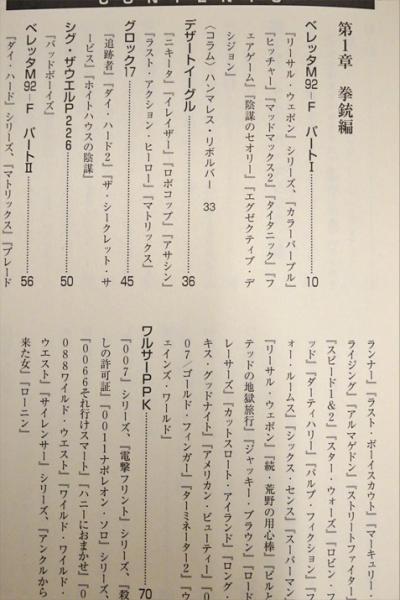 CONTENTS
第1章 拳銃編
ベレッタM92-F パートⅠ……10
『リーサル・ウェポン』シリーズ、『カラーパープル』
『ヒッチャー』『マッドマックス2』『タイタニック』『フ
ェアゲーム』『陰謀のセオリー』『エグゼクティブ・デ
シジョン』
〈コラム〉ハンマレス・リボルバー 33
デザートイーグル……36
『ニキータ』『イレイザー』『ロボコップ』『アサシン』
『ラスト・アクション・ヒーロー』『マトリックス』
グロック17……45
『追跡者』『ダイ・ハード2』『ザ・シークレット・サ
ービス』『ホイトハウスの陰謀』
シグ・ザウエルP226……50
『バッドボーイズ』
ベレッタM92-F パートⅡ……56
『ダイ・ハード』シリーズ、『マトリックス』『ブレード
ランナー』『ラスト・ボーイスカウト』『マーキュリー・
ライジング』『アルマゲドン』『ストリートファイター』
『スピード1&2』『スター・ウォーズ』『ロビン・フ
ッド』『ダーティハリー』『パルプ・フィクション』『フ
ォー・ルームス』『シックス・センス』『スーパーマン』
『リーサル・ウェポン』『続・荒野の用心棒』『ビルと
テッドの地獄旅行』『ジャッキー・ブラウン』『ロード
レーサーズ』『カットスロート・アイランド』『ロング・
キス・グッドナイト』『アメリカン・ビューティー』『0
07/ゴールド・フィンガー』『ターミネーター2』『ウ
ェインズ・ワールド』
ワルサーPPK……70
『007』シリーズ、『電撃フリント』シリーズ、『殺
しの許可証』『0011ナポレオン・ソロ』シリーズ、
『0066それ行けスマート』『ハニーにおまかせ』『0
088ワイルド・ウエスト』『ワイルド・ワイルド・
ウエスト』『サイレンサー』シリーズ、『アンクルから
来た女』『ローニン』